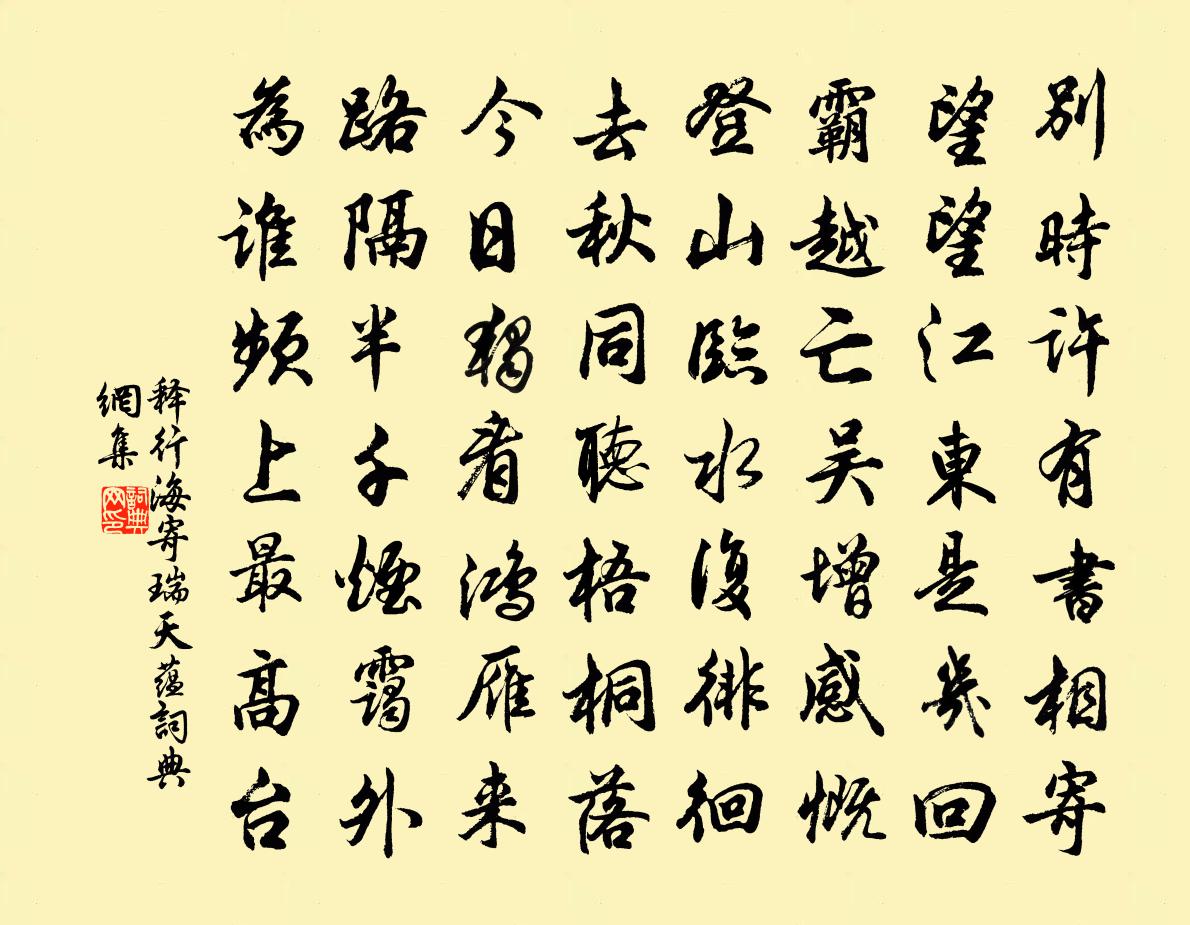 別時許有書相寄
望望江東是幾回
霸越亡吴增感慨
登山臨水復徘徊
去秋同聽梧桐落
今日獨看鴻雁来
路隔半千煙靄外
為誰頻上最高台
释行海寄瑞天蕴詞典
網集
詞典
网印